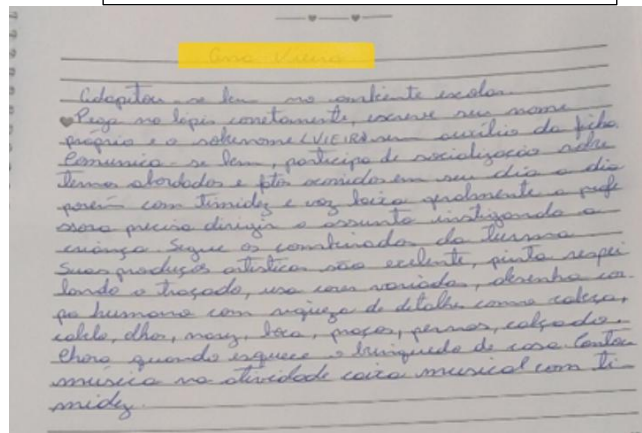 Ana Vieira
Adapitou-se bem no ambiente escolar.
Pega no lápis corretamente, escreve seu nome
próprio e o sobrenome (VIEIRA) sem auxílio da ficha.
Comunica-se bem, participa de socialização sobre
temas abordados e fatos ocorridos em seu dia a dia
porém com timidez e voz baixa geralmente a profe
ssora precisa dirigir o assunto instigando a
criança. Segue os combinados da turma.
Suas produções artísticas são exelente, pinta respei
tando o traçado, usa cores variadas, desenha cor
po humano com riqueza de detalhes como cabeça,
cabelo, olhos, nariz, boca, braços, pernas, calçado.
Chora quando esquece o brinquedo de casa. Cantou
música na atividade caixa musical com ti
midez.